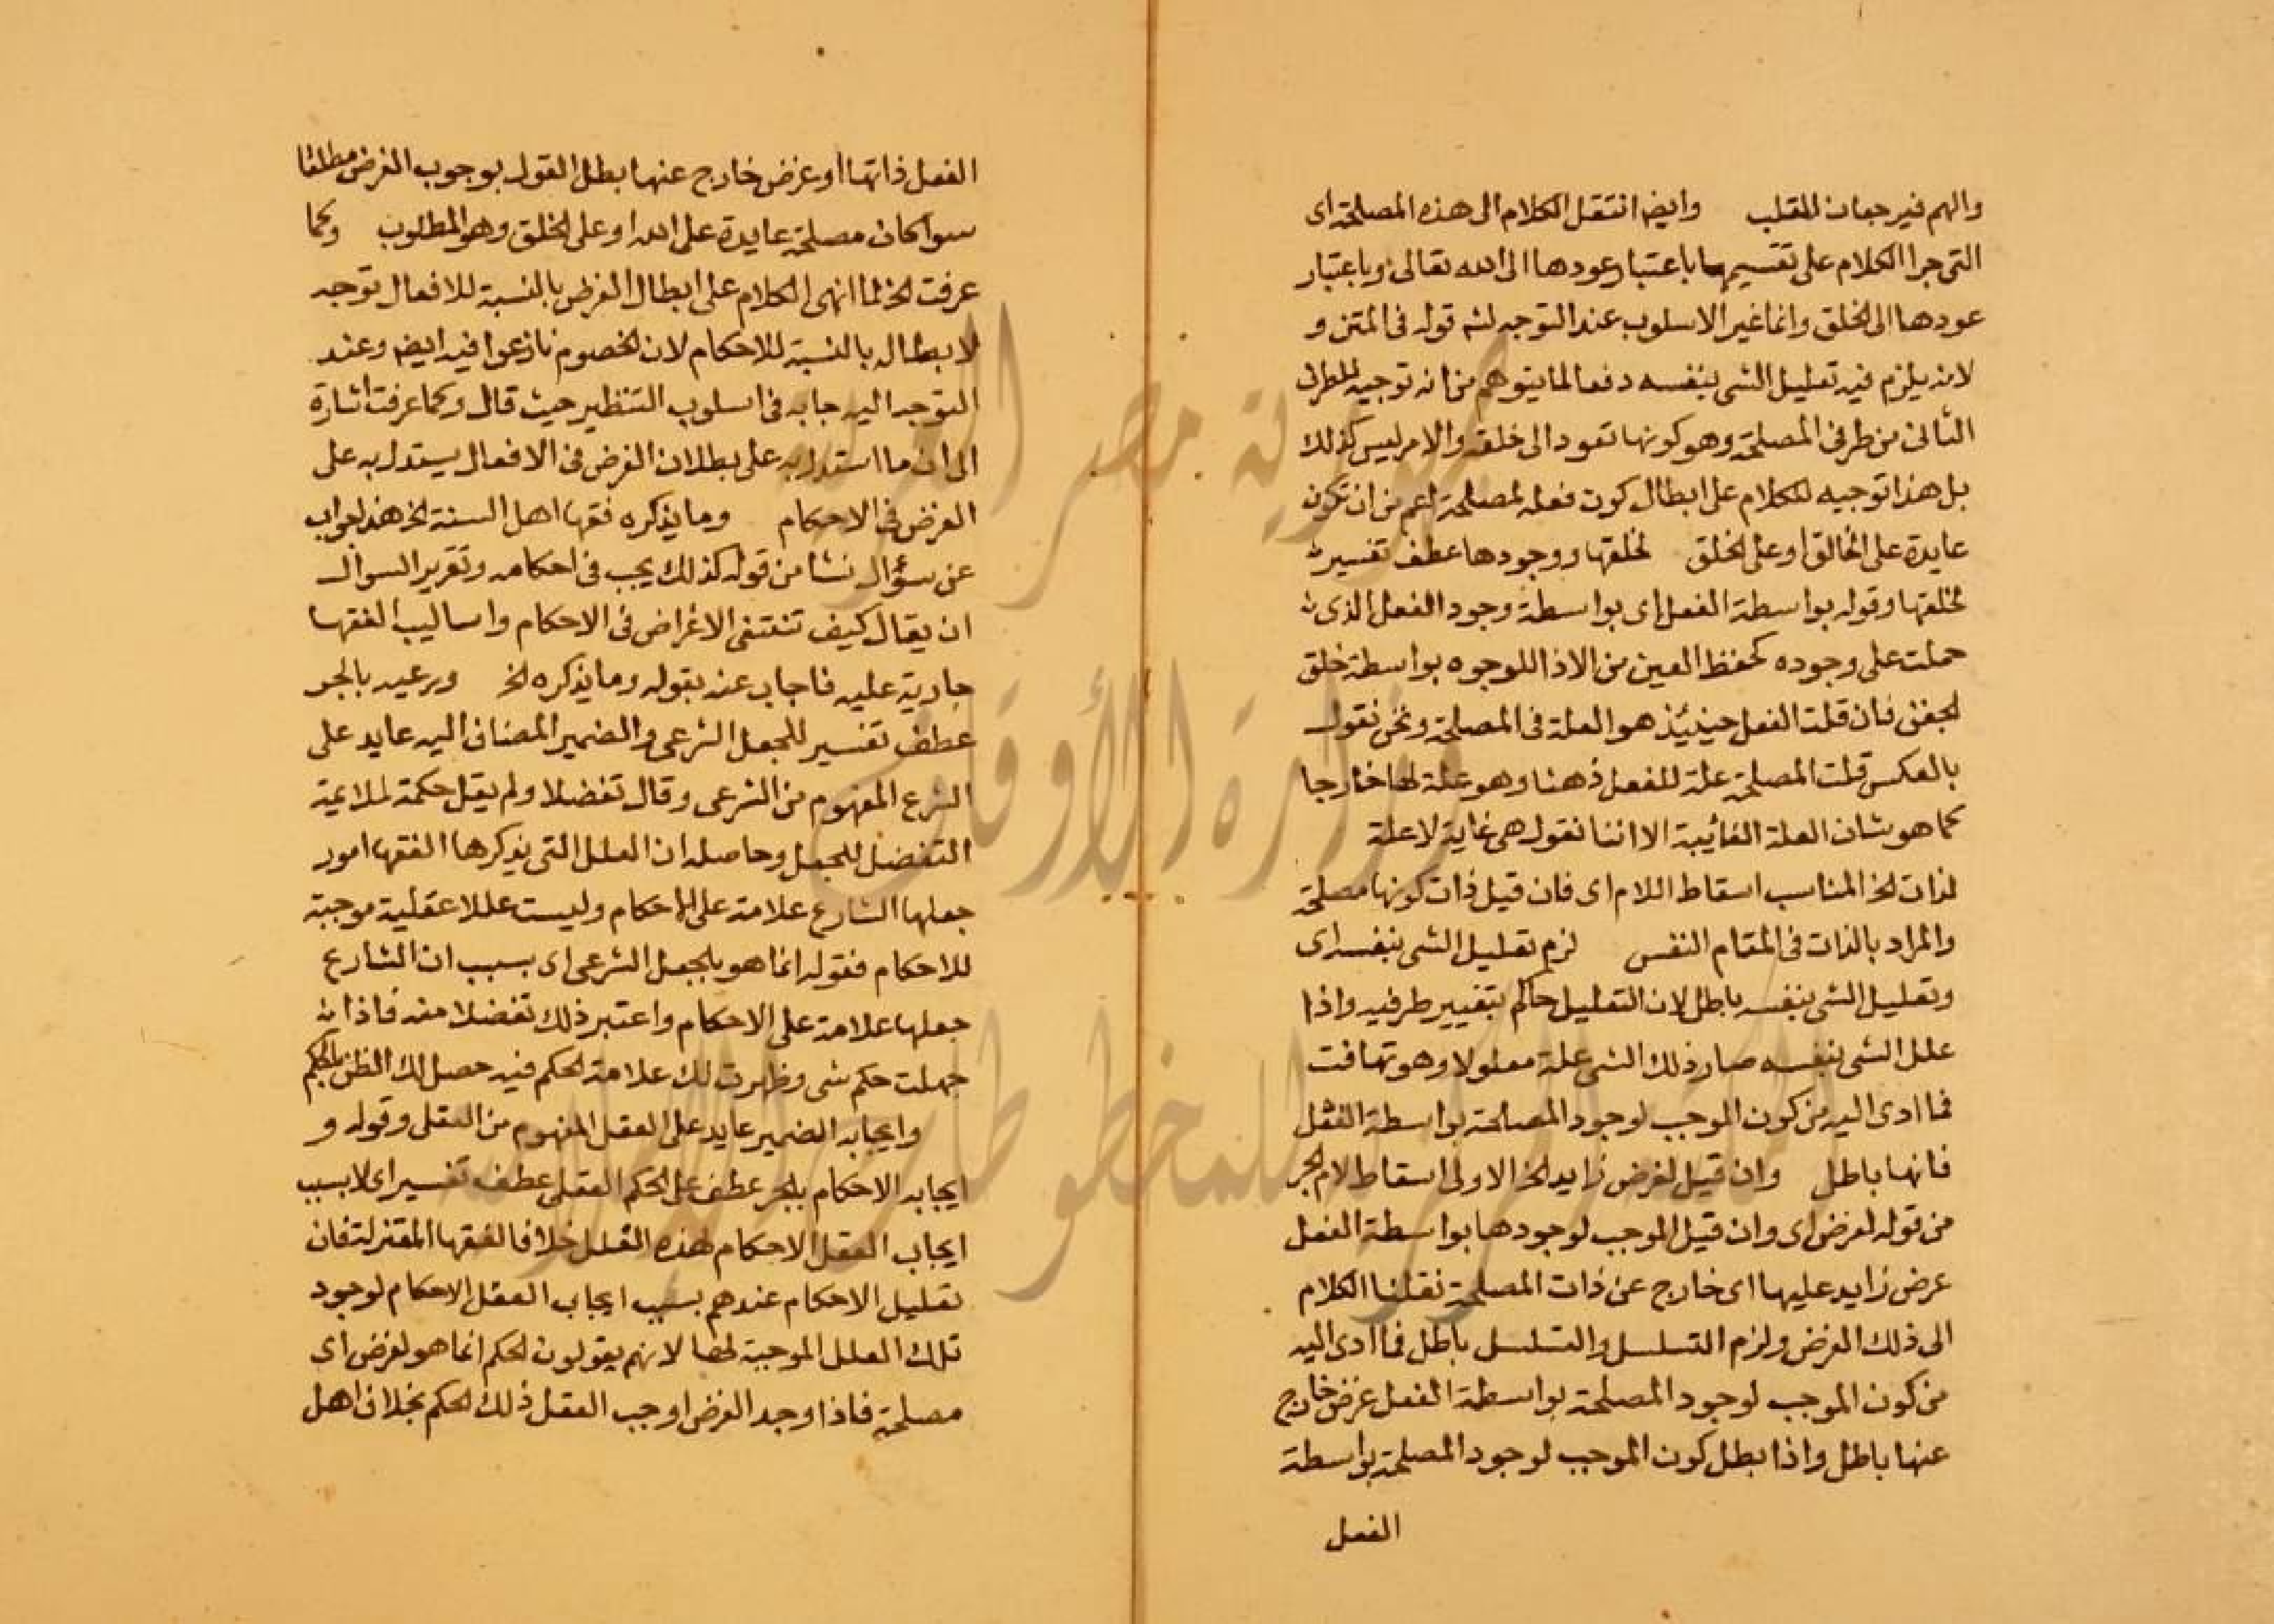 والهم فيرجعان للقلب وايضا ننتقل الكلام الى هذه المصلحة اى
التى جرا الكلام على تقسيمها باعتبار عودها الى الله تعالى وباعتبار
عودها الى الخلق وانما غير الاسلوب عند التوجه لشـ قوله فى المتن و
لانه يلزم فيه تعليل الشى بنفسه دفعا لما يتوهم من انه توجيه للطرف
الثانى من طرفى المصلحة وهو كونها تعود الى خلقه والامر ليس كذلك
بل هذا توجيه للكلام على ابطال كون فعله لمصلحة اعم من ان تكون
عايدة على الخالق او على الخلق لخلقها ووجودها عطف تفسير
لخلقها وقوله بواسطة الفعل اى بواسطة وجود الفعل الذى
حملت على وجوده كحفظ العين من الاذا للوجوه بواسطة خلق
الجفن فان قلت الفعل حينئذ هو العلة فى المصلحة ونحن نقول
بالعكس قلت المصلحة علة للفعل ذهنا وهو علة لها خارجا
كما هو شان العلة الغائيبة الا اننا نقول هى غاية لا علة
لذات الخ المناسب اسقاط اللام اى فان قيل ذات كونها مصلحة
والمراد بالذات فى المقام النفس لزم تعليل الشى بنفسه اى
وتعليل الشى بنفسه باطل لان التعليل حاكم بتغيير طرفيه واذا
علل الشى بنفسه صار ذلك الشى علة معلولا وهو تهافت
فما ادى اليه من كون الموجب لوجود المصلحة بواسطة الفعل
فانها باطل وان قيل لغرض زايد الخ الاولى اسقاط لام الجر
من قوله لغرض اى وان قيل الموجب لوجودها بواسطة الفعل
عرض زايد عليها اى خارج عن ذات المصلحة نقلنا الكلام
الى ذلك الغرض ولزم التسلسل والتسلسل باطل فما ادى اليه
من كون الموجب لوجود المصلحة بواسطة الفعل غرض خارج
عنها باطل واذا بطل كون الموجب لوجود المصلحة بواسطة
الفعل
الفعل ذاتها او غرض خارج عنها بطل القول بوجوب الغرض مطلقا
سوا كان مصلحة عايدة على الله او على الخلق وهو المطلوب وكما
عرفت الخ لما انهى الكلام على ابطال الغرض بالنسبة للافعال توجه
لابطاله بالنسبة للاحكام لان الخصوم نازعوا فيه ايضا وعند
التوجه اليه جابه فى اسلوب التنظير حيث قال وكما عرفت اشارة
الى ان ما استدل به على بطلان الغرض فى الافعال يستدل به على
الغرض فى الاحكام وما يذكره فقها اهل السنة الخ هذا جواب
عن سؤال نشا من قوله كذلك يجب فى احكامه وتقرير السوال
ان يقال كيف تنتفى الاغراض فى الاحكام واساليب الفقها
جارية عليه فاجاب عنه بقوله وما يذكره الخ ورعيه بالجر
عطف تفسير للجعل الشرعى والضمير المضاف اليه عايد على
الشرع المفهوم من الشرعى وقال تفضلا ولم يقل حكمة لملايمة
التفضل للجعل وحاصله ان العلل التى يذكرها الفقها امور
جعلها الشارع علامة على الاحكام وليست عللا عقلية موجبة
للاحكام فقوله انما هو بالجعل الشرعى اى بسبب ان الشارع
جعلها علامة على الاحكام واعتبر ذلك تفضلا منه فاذا
جهلت حكم شى وظهرت لك علامة الحكم فيه حصل لك الظن بالحكم
وايجابه الضمير عايد على العقل المفهوم من العقلى وقوله و
ايجابه الاحكام بالجر عطف على الحكم العقلى عطف تفسير اى لا بسبب
ايجاب العقل الاحكام لهذه العلل خلافا لفقها المعتزلة فان
تعليل الاحكام عندهم بسبب ايجاب العقل الاحكام لوجود
تلك العلل الموجبة لها لانهم يقولون الحكم انما هو لغرض اى
مصلحة فاذا وجد الغرض اوجب العقل ذلك الحكم بخلاف اهل
جمهورية مصر العربية
وزارة الأوقاف
المكتبة المركزية للمخطوطات الإسلامية